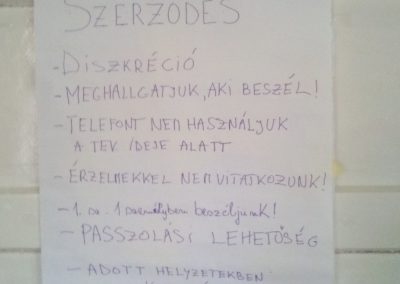 SZERZŐDÉS
- DISZKRÉCIÓ
- MEGHALLGATJUK, AKI BESZÉL!
- TELEFONT NEM HASZNÁLJUK
A TEV IDEJE ALATT
- ÉRZELMEKKEL NEM VITATKOZUNK!
- 1. sz. 1 személyben beszéljünk!
- PASSZOLÁSI LEHETŐSÉG
- ADOTT HELYZETEKBEN